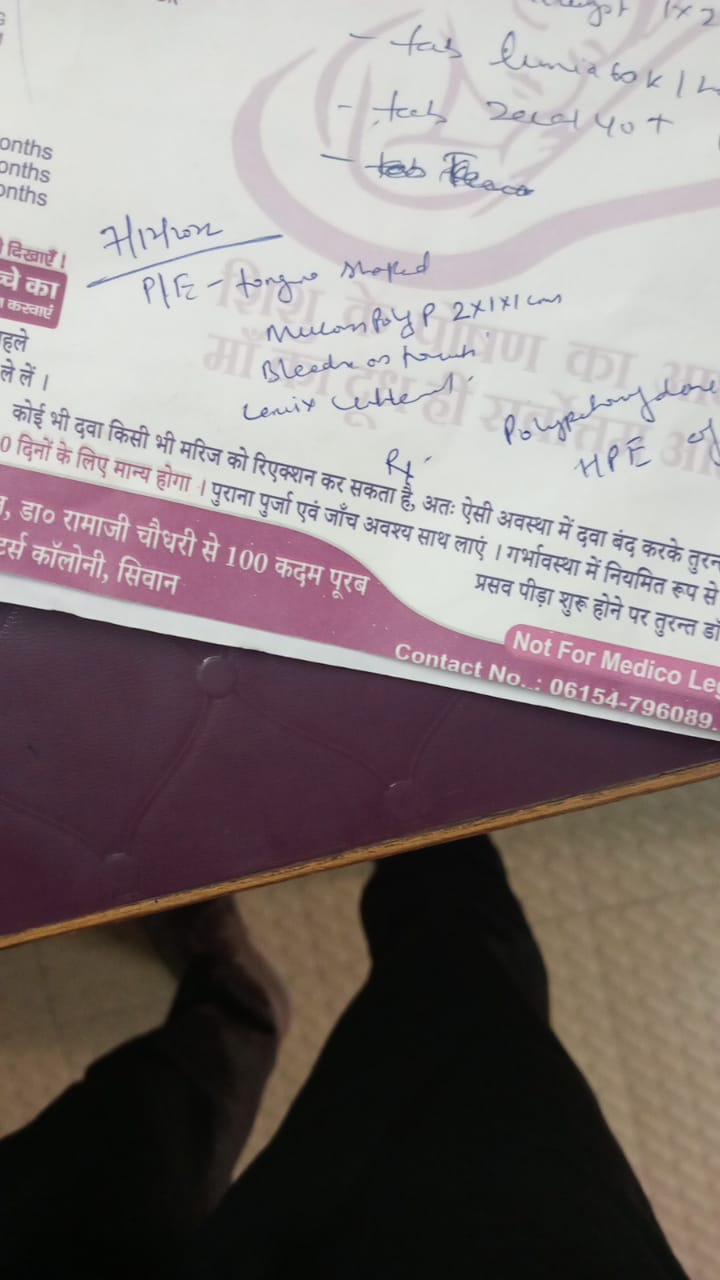 1x2
- tab lumia 60k 1
- tab Zecal 40 +
- tab
onths
onths
onths
7/12/2022
P/E - tongue shaped
Mucous Polyp 2x1x1 cm
Bleeds on touch
दिखाएँ।
चे का
करवाएं
शिशु के पोषण का
माँ का दूध ही सर्वोत्तम
हले
ले लें ।
HPE of
Rx
कोई भी दवा किसी भी मरिज को रिएक्शन कर सकता है, अतः ऐसी अवस्था में दवा बंद करके तुरन
0 दिनों के लिए मान्य होगा । पुराना पुर्जा एवं जाँच अवश्य साथ लाएं । गर्भावस्था में नियमित रूप से
प्रसव पीड़ा शुरू होने पर तुरन्त डॉ
, डा० रामाजी चौधरी से 100 कदम पूरब
टर्स कॉलोनी, सिवान
Not For Medico Leg
Contact No..: 06154-796089.